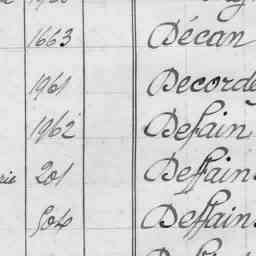 1663 Décan
1961 Decorde
1962 Defain
rie 201 Deffain
504 Deffain